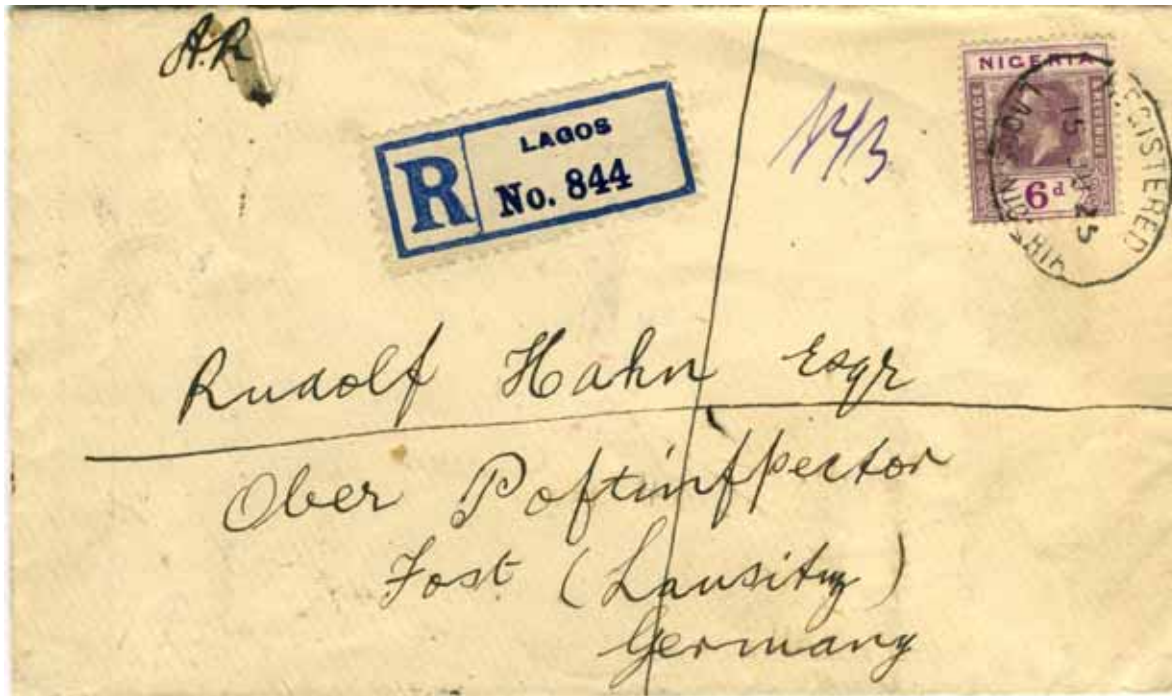 A.R
LAGOS
R
No. 844
NIGERIA
POSTAGE
6d
REGISTERED
15
25
Rudolf Hahn Esqr
Ober Poftinfpector
Fost (Lausitz)
Germany